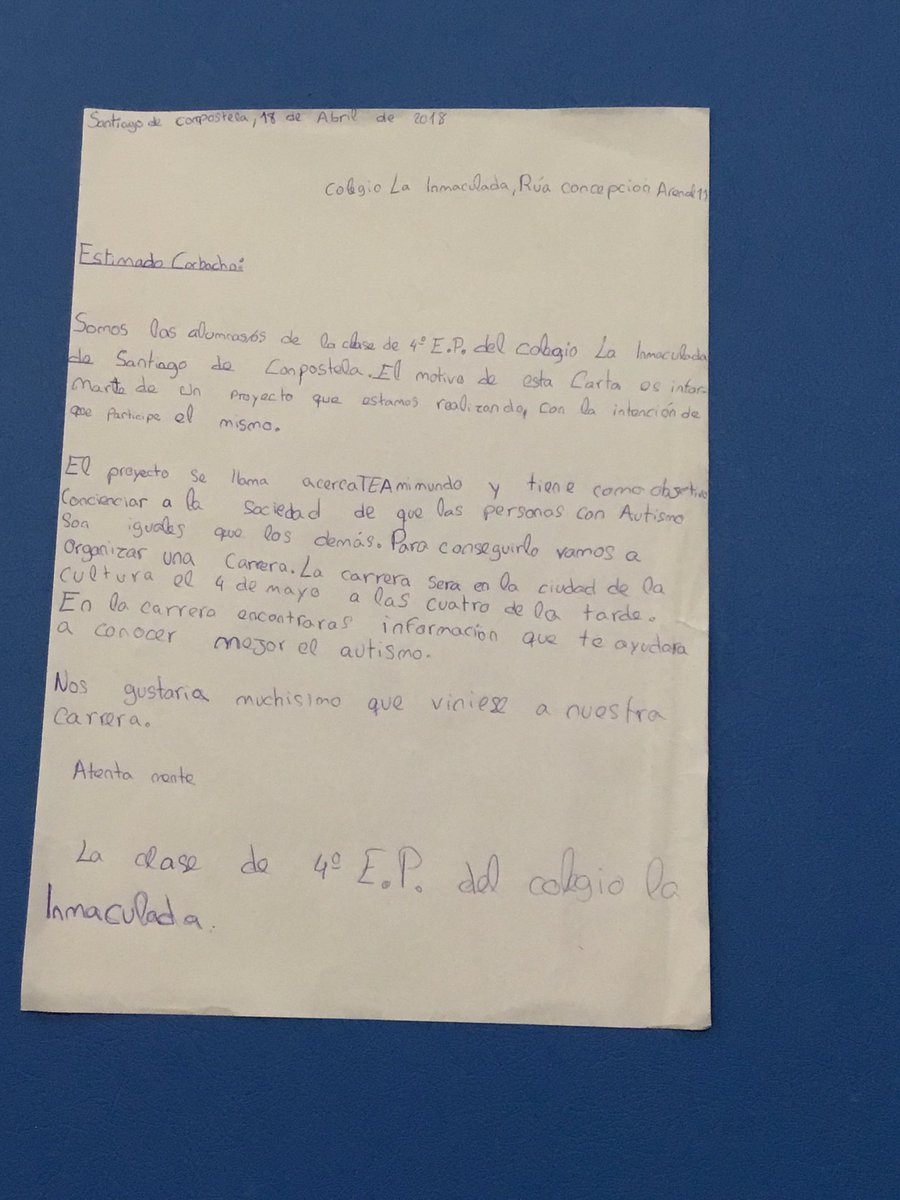 Santiago de Conpostela, 18 de Abril de 2018
Colegio La Inmaculada, Rúa concepción Arenal
Estimado Corbacho:
Somos las alumnas/os de la clase de 4º E.P. del colegio La Inmaculada
de Santiago de Conpostela. El motivo de esta Carta es infor-
marte de un proyecto que estamos realizando, con la intención de
que participe el mismo.
El proyecto se llama acercaTEAmimundo y tiene como objetivo
Concienciar a la Sociedad de que las personas con Autismo
Son iguales que los demás. Para conseguirlo vamos a
Organizar una Carrera. La carrera sera en la ciudad de la
Cultura el 4 de mayo a las cuatro de la tarde.
En la carrera encontraras información que te ayudara
a conocer mejor el autismo.
Nos gustaria muchisimo que viniese a nuestra
Carrera.
Atenta mente
La clase de 4º E.P. del colegio la
Inmaculada.